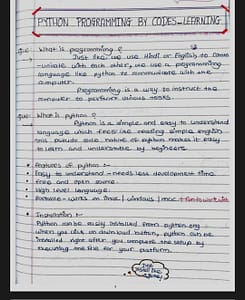 PYTHON PROGRAMMING BY CODES_LEARNING
Que. What is programming ?
Just like we use Hindi or English to commu
-unicate with each other, we use a programming
language like python to communicate with the
computer.
Programming is a way to instruct the
computer to perform various tasks.
Que. What is python ?
Python is a simple and easy to understand
language which feels like reading simple english
this pseudo code nature of python makes it easy
to learn and understable by beginners
Features of python :-
Easy to understand - needs less development time
Free and open source.
High level language.
Portable - works on linux | windows | mac
Installation :-
Python can be easily installed from python.org
when you click on download button, python can be
installed right after you complete the setup by
executing the file for your platform.
Just
install like